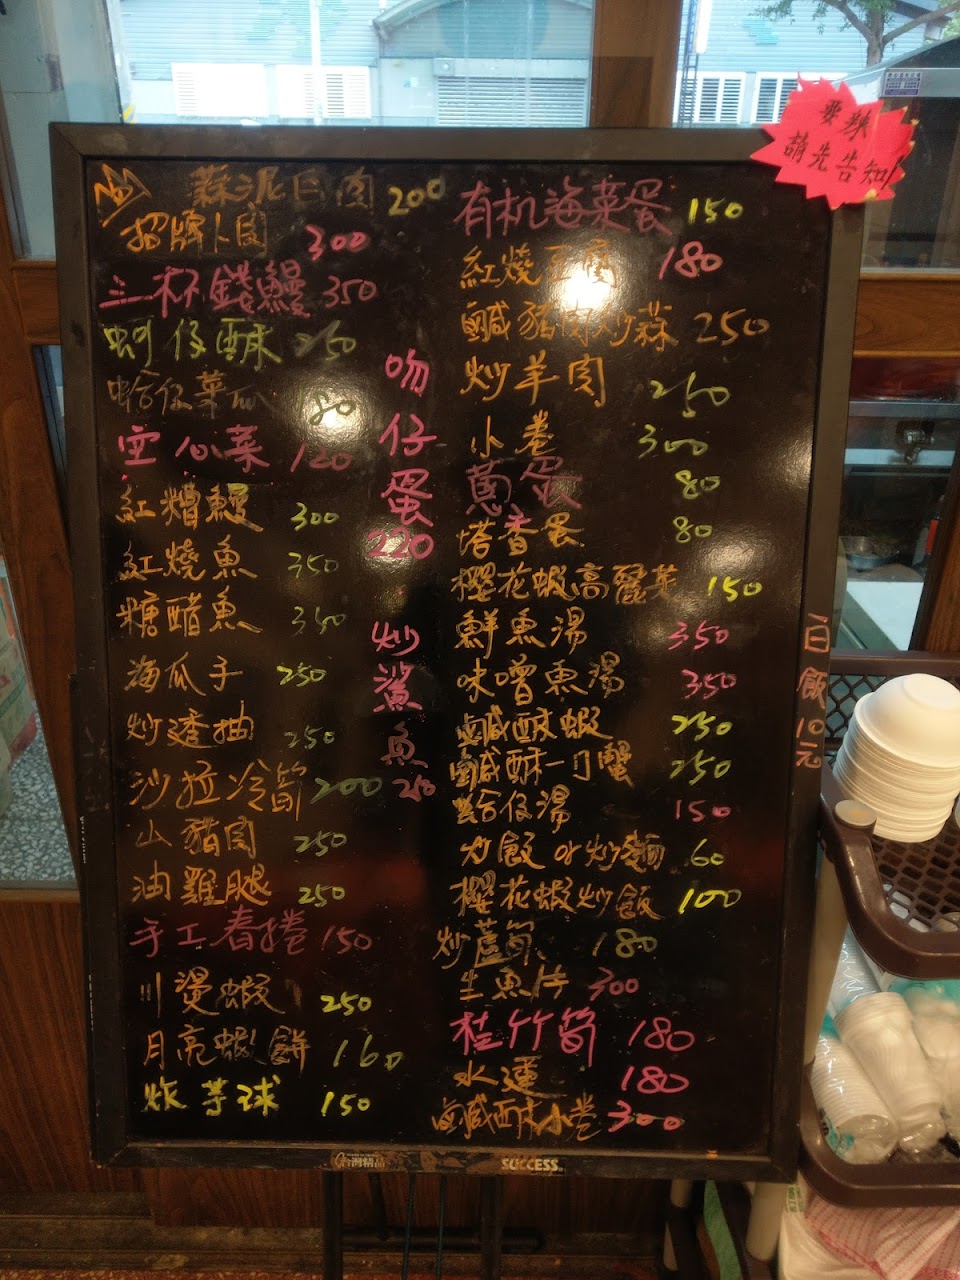 要辣
請先告知
蒜泥白肉 200
招牌卜肉 300
三杯錢鰻 350
蚵仔酥 250
蛤仔菜瓜 80
空心菜 120
紅糟鰻 300
紅燒魚 350
糖醋魚 350
海瓜子 250
炒透抽 250
沙拉冷筍 200
山豬肉 250
油雞腿 250
手工春捲 150
川燙蝦 250
月亮蝦餅 160
炸芋球 150
吻仔蛋 220
炒鯊魚 250
有机海菜蛋 150
紅燒豆腐 180
鹹豬肉炒蒜 250
炒羊肉 250
小卷 300
蔥蛋 80
塔香蛋 80
櫻花蝦高麗菜 150
鮮魚湯 350
味噌魚湯 350
鹹酥蝦 250
鹹酥一刀蟹 250
蛤仔湯 150
炒飯 or 炒麵 60
櫻花蝦炒飯 100
炒蘆筍 180
生魚片 300
桂竹筍 180
水蓮 180
鹹酥小卷 300
白飯10元
台灣精品
SUCCESS